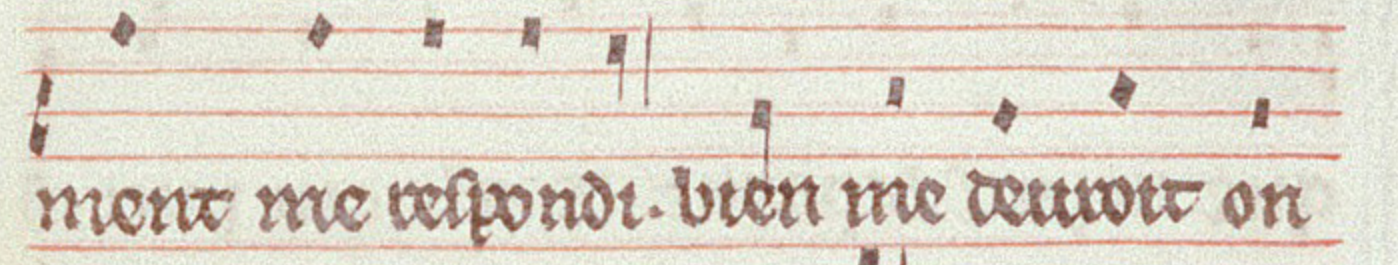 ment me respondi. bien me deuroit on